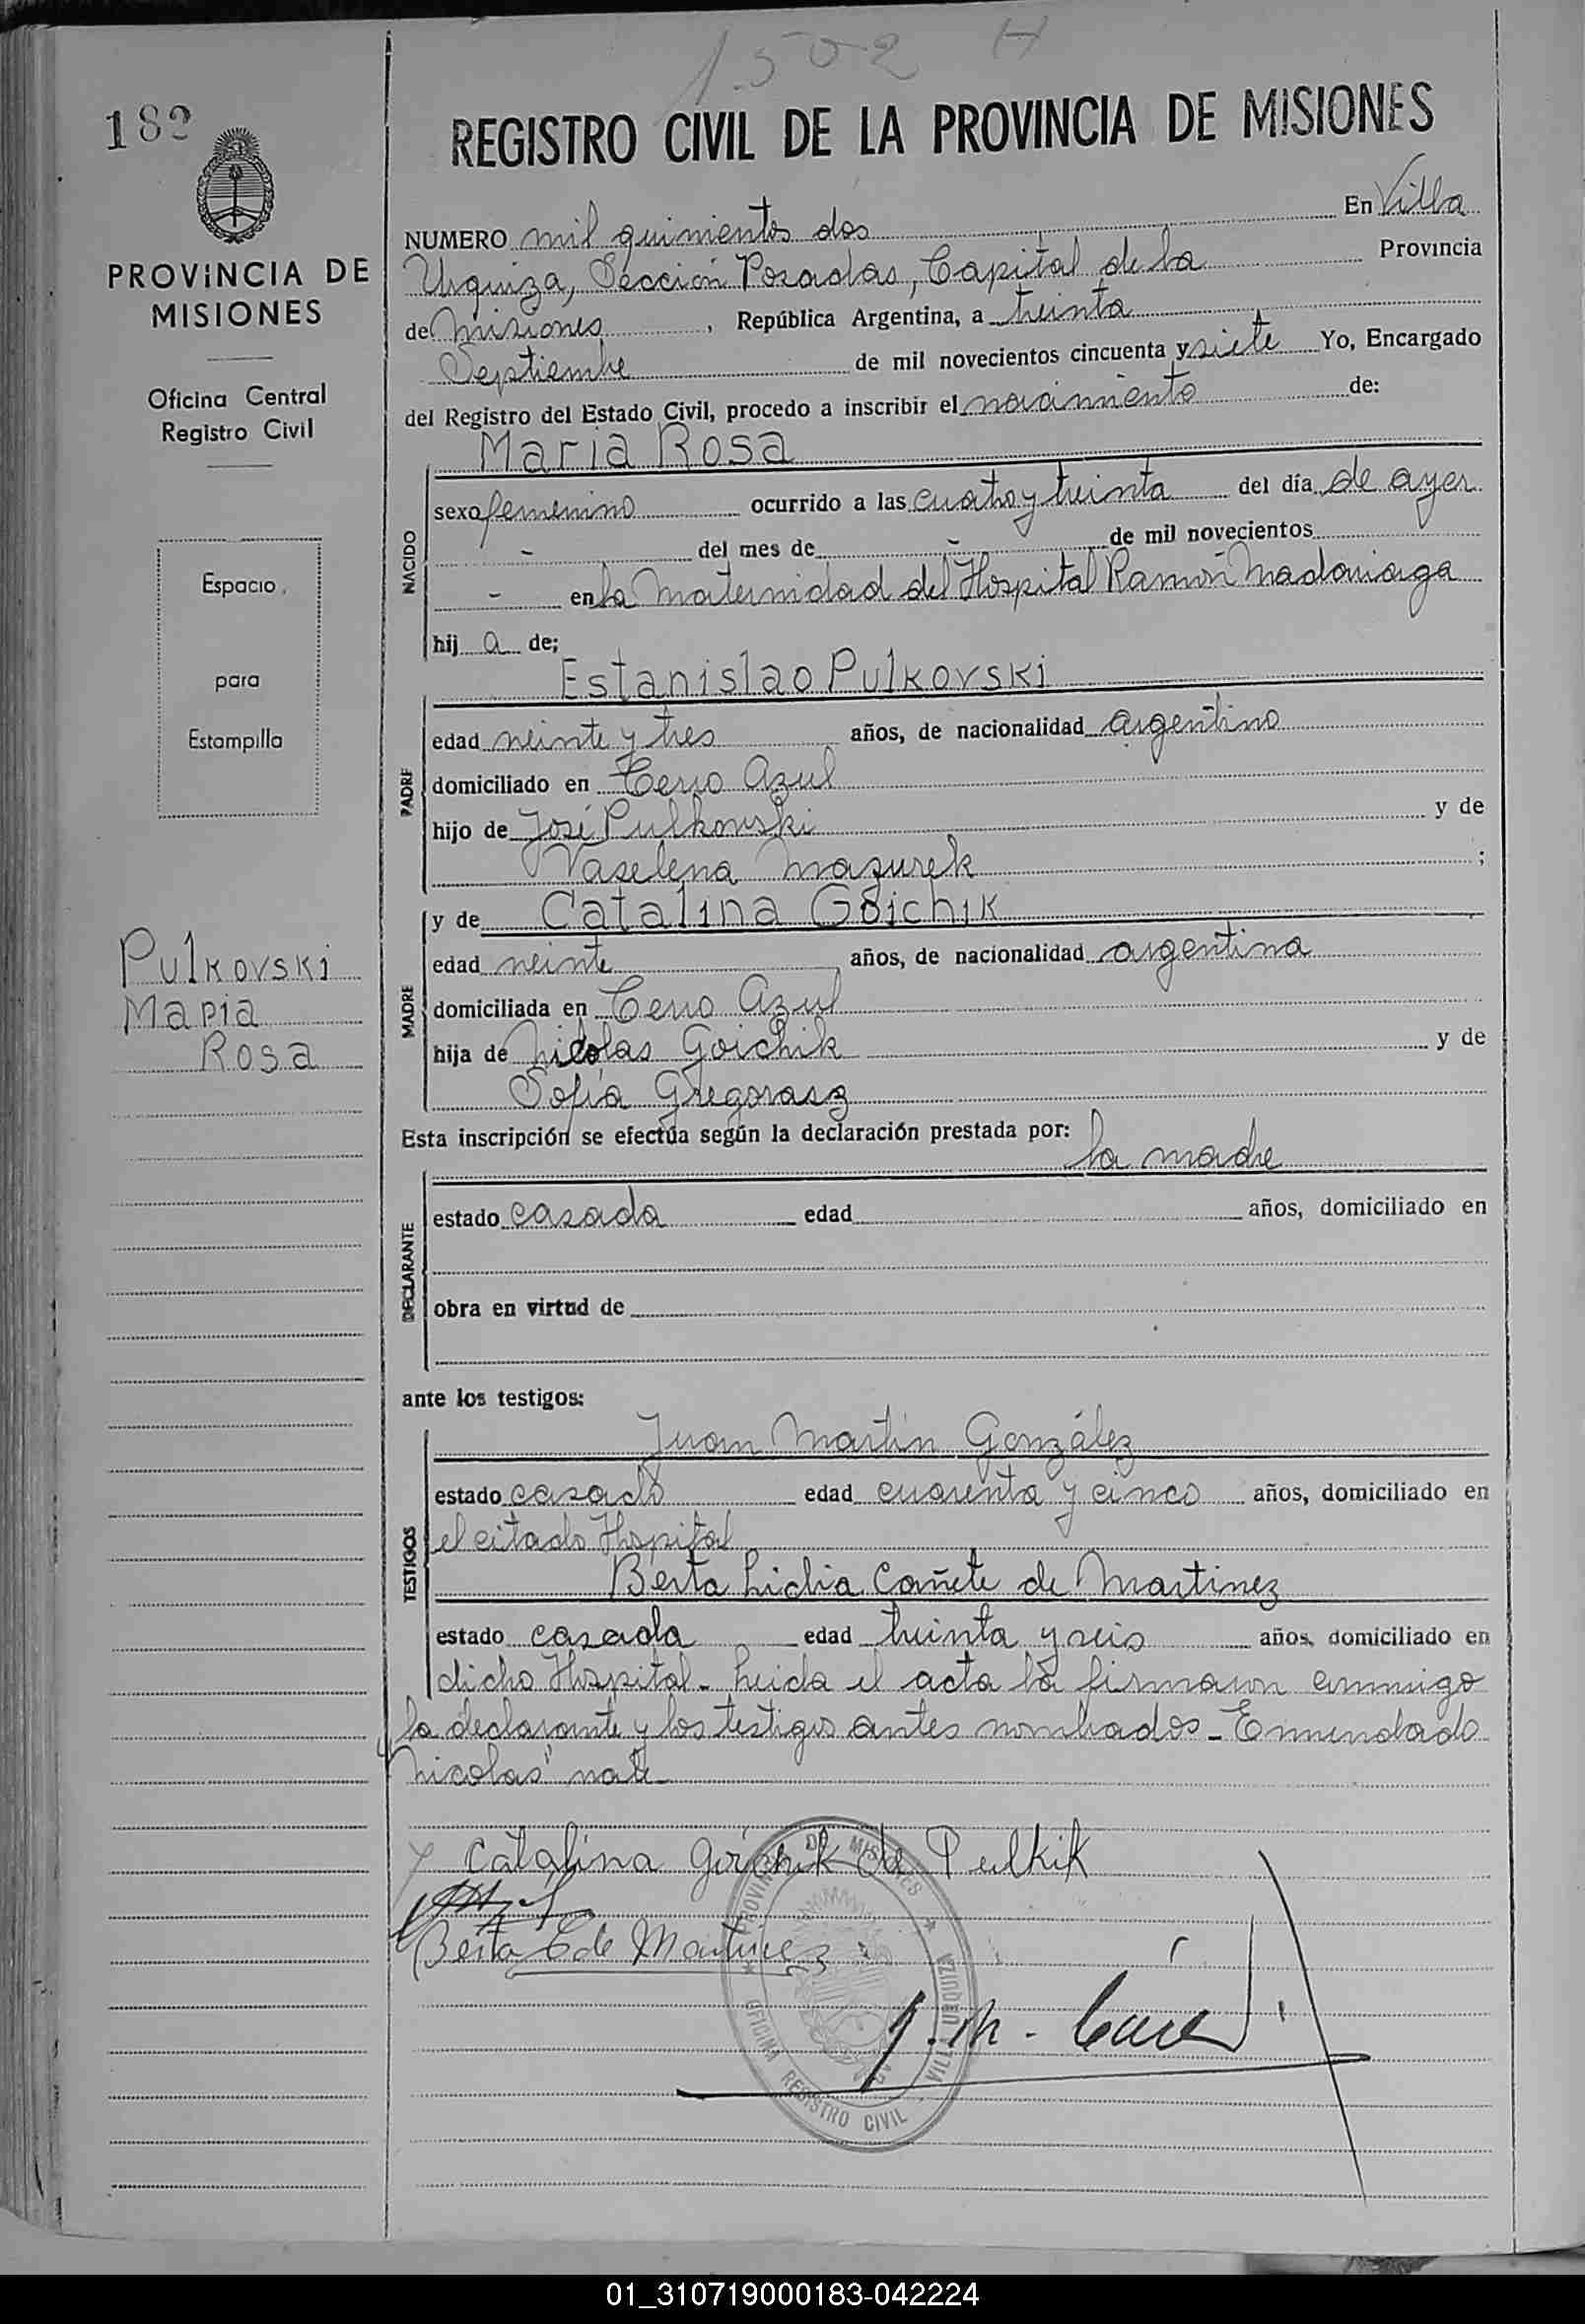 1502 H
182
REGISTRO CIVIL DE LA PROVINCIA DE MISIONES
PROVINCIA DE
MISIONES
Oficina Central
Registro Civil
Espacio
para
Estampilla
Pulkovski
Maria
Rosa
NUMERO mil quinientos dos En Villa
Urquiza, Sección Posadas, Capital de la Provincia
de Misiones, República Argentina, a treinta
Septiembre de mil novecientos cincuenta y siete Yo, Encargado
del Registro del Estado Civil, procedo a inscribir el nacimiento de:
Maria Rosa
NACIDO
sexo femenino ocurrido a las cuatro y treinta del día de ayer
- del mes de - de mil novecientos
- en la Maternidad del Hospital Ramón Madariaga
hij a de;
Estanislao Pulkovski
PADRE
edad veinte y tres años, de nacionalidad argentino
domiciliado en Cerro Azul
hijo de José Pulkovski y de
Vaselena Mazurek ;
y de Catalina Goichik
MADRE
edad veinte años, de nacionalidad argentina
domiciliada en Cerro Azul
hija de Nicolas Goichik y de
Sofía Gregorasz
Esta inscripción se efectúa según la declaración prestada por:
la madre
DECLARANTE
estado casada edad años, domiciliado en
obra en virtud de
ante los testigos:
Juan Martín González
TESTIGOS
estado casado edad cuarenta y cinco años, domiciliado en
el citado Hospital
Berta Lidia Cañete de Martinez
estado casada edad treinta y seis años, domiciliado en
dicho Hospital - Leida el acta la firmaron conmigo
la declarante y los testigos antes nombrados - Enmendado
"Nicolas" vale
Catalina goichik de Pulkik
Berta C de Martinez
PROVINCIA DE MISIONES
OFICINA REGISTRO CIVIL
VILLA URQUIZA
01_310719000183-042224